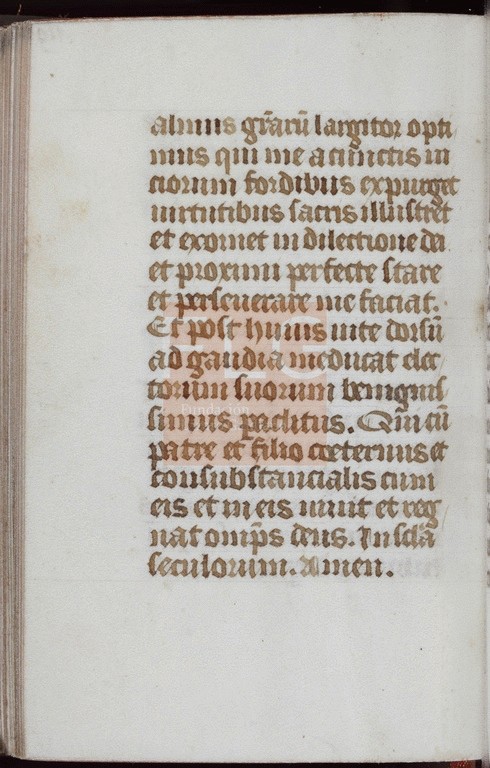 almus gr̃arũ largitor opti
mus qui me a cunctis ui
ciorum sordibus expurget
uirtutibus sacris illustret
et exornet in dilectione dei
et proximi perfecte stare
et perseuerare me faciat.
Et post huius uite dorsũ
ad gaudia me ducat elec
torum suorum benignis
simus paclitus. Qui cũ
patre et filio coeternus et
consubstancialis cum
eis et in eis uiuit et reg
nat omp̃s deus. In sclã
seculorum. Amen.